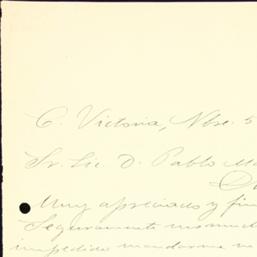 C. Victoria, Nbre. 5
Sr. Lic. D. Pablo
Muy apreciado y
Seguramente
impedido mandarme